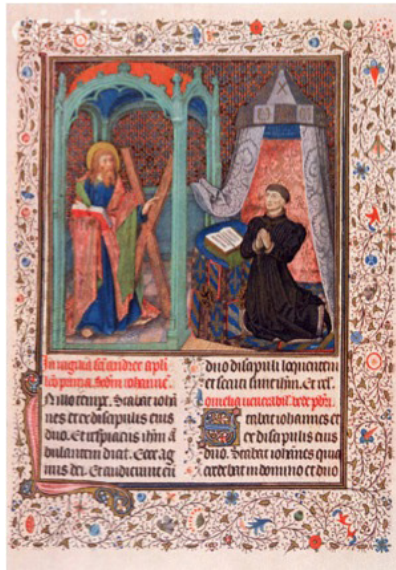 In vigilia sci andree apli
prima. Scdm iohanne.
N illo tempr. Stabat ioha
nes et ex discipulis eius
duo. Et respiciens ihm ā
bulantem dicit. Ecce ag
nus dei. Et audierunt eū
duo discipuli loquentem
et secuti sunt ihm. Et rel.
Omelia venerabil. bede pbri.
Stabat iohannes et
ex discipulis eius
duo. Stabat iohannes quia
credebat in domino et duo